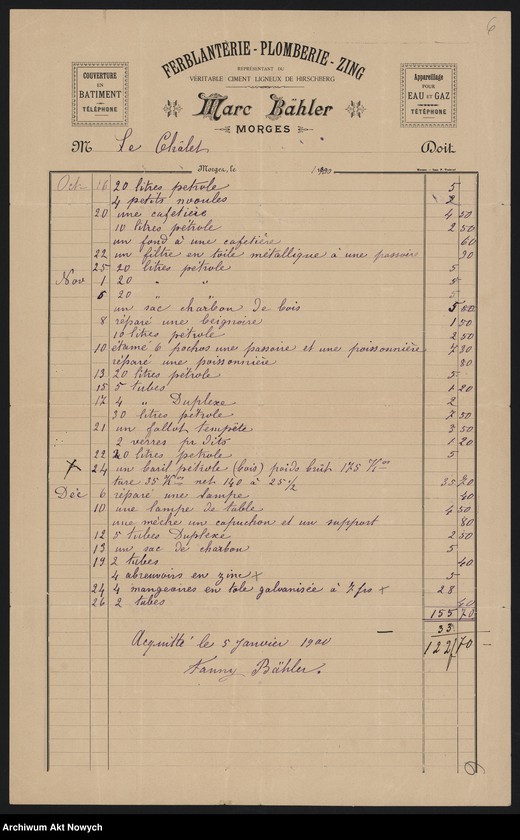 6
FERBLANTERIE - PLOMBERIE - ZING
REPRÉSENTANT DU
VÉRITABLE CIMENT LIGNEUX DE HIRSCHBERG
COUVERTURE
EN
BATIMENT
TÉLÉPHONE
Appareillage
POUR
EAU ET GAZ
TÉTÉPHONE
Marc Bähler
MORGES
M Le Châlet Doit
Morges, le 1900
Oct 16 20 litres pétrole 5
4 petits 2
20 une cafetière 4 50
10 litres pétrole 2 50
un fond à une cafetière 60
22 un filtre en toile métallique à une passoir 90
25 20 litres pétrole 5
Nov 1 20 " " 5
6 20 " " 5
un sac charbon de bois 5 50
8 réparé une beignoire 1 50
10 litres pétrole 2 50
10 étamé 6 pochos une passoire et une poissonnière 7 30
réparé une poissonnière 80
13 20 litres pétrole 5
15 5 tubes 1 20
17 4 " Duplexe 2
30 litres pétrole 7 50
21 un fallot tempête 3 50
2 verres pr dito 1 20
22 20 litres pétrole 5
X 24 un baril pétrole (bois) poids brut 175 Kos
tare 35 Kos net 140 à 25 1/2 35 70
Déc 6 réparé une lampe 40
10 une lampe de table 4 50
une mèche un capuchon et un support 80
12 5 tubes Duplexe 2 50
13 un sac de charbon 5
19 2 tubes 40
4 abreuvoirs en zinc x 5
24 4 mangeoires en tole galvanisée à 7 frs x 28
26 2 tubes 40
155 70
33 —
122 70 —
Acquitté le 5 Janvier 1900
Fanny Bähler.
Archiwum Akt Nowych